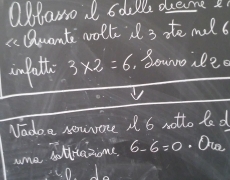 Abbasso il 6 delle decine e
<< Quante volte il 3 sta nel 6
infatti 3 x 2 = 6. Scrivo il 2 a
Vado a scrivere il 6 sotto le d
una sottrazione, 6-6=0. Ora